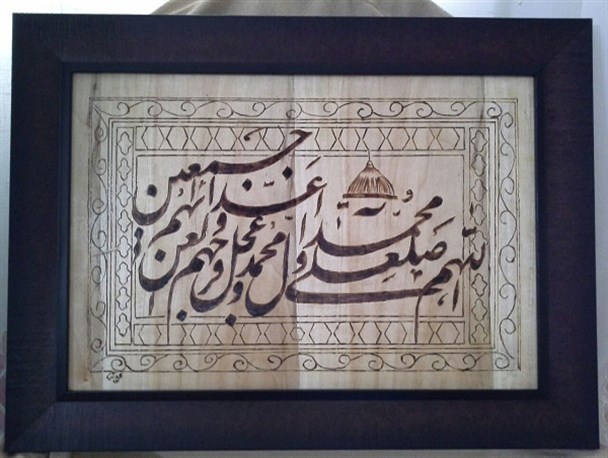 اللهم صل علی محمد و آل محمد و عجل فرجهم و العن اعدائهم اجمعین